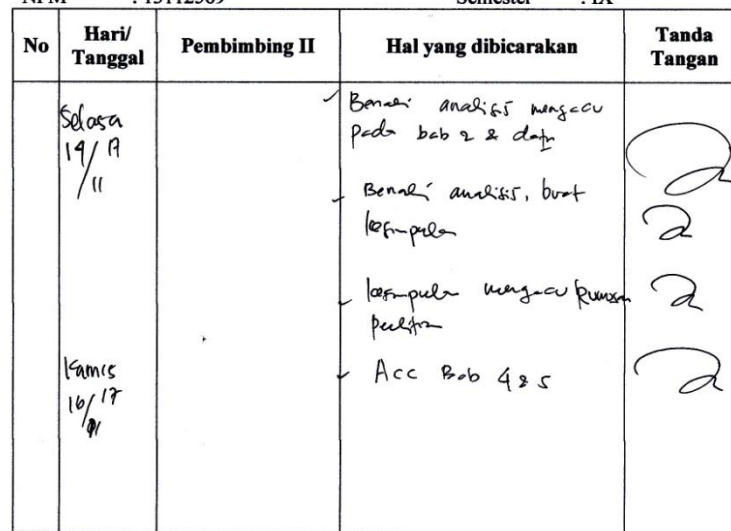 No Hari/ Tanggal Pembimbing II Hal yang dibicarakan Tanda Tangan
Selasa
14/ 17
/ 11
✓ Benahi analisis mengacu
pada bab 2 & data
✓ Benahi analisis, buat
kesimpulan
✓ kesimpulan mengacu Rumusan
Penelitian
Kamis
16/ 17
✓ Acc Bab 4 & 5